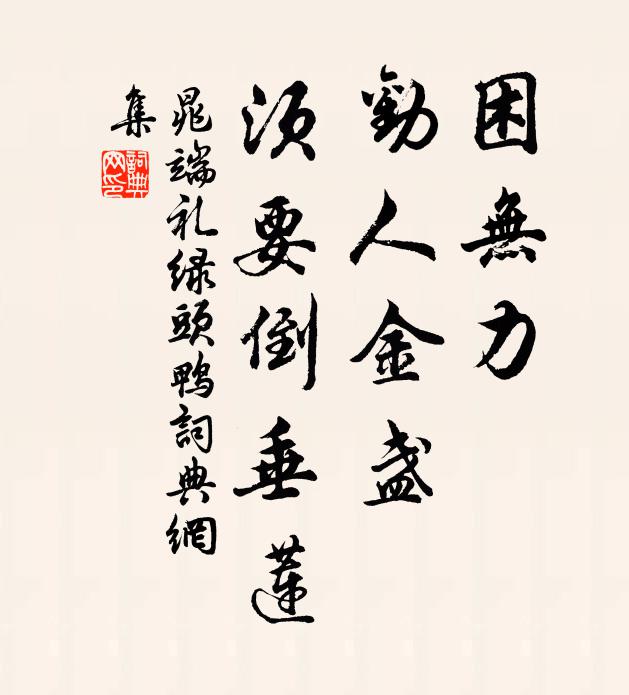 困無力
勸人金盞
須要倒垂蓮
晁端礼绿頭鴨詞典網
集
詞典網印